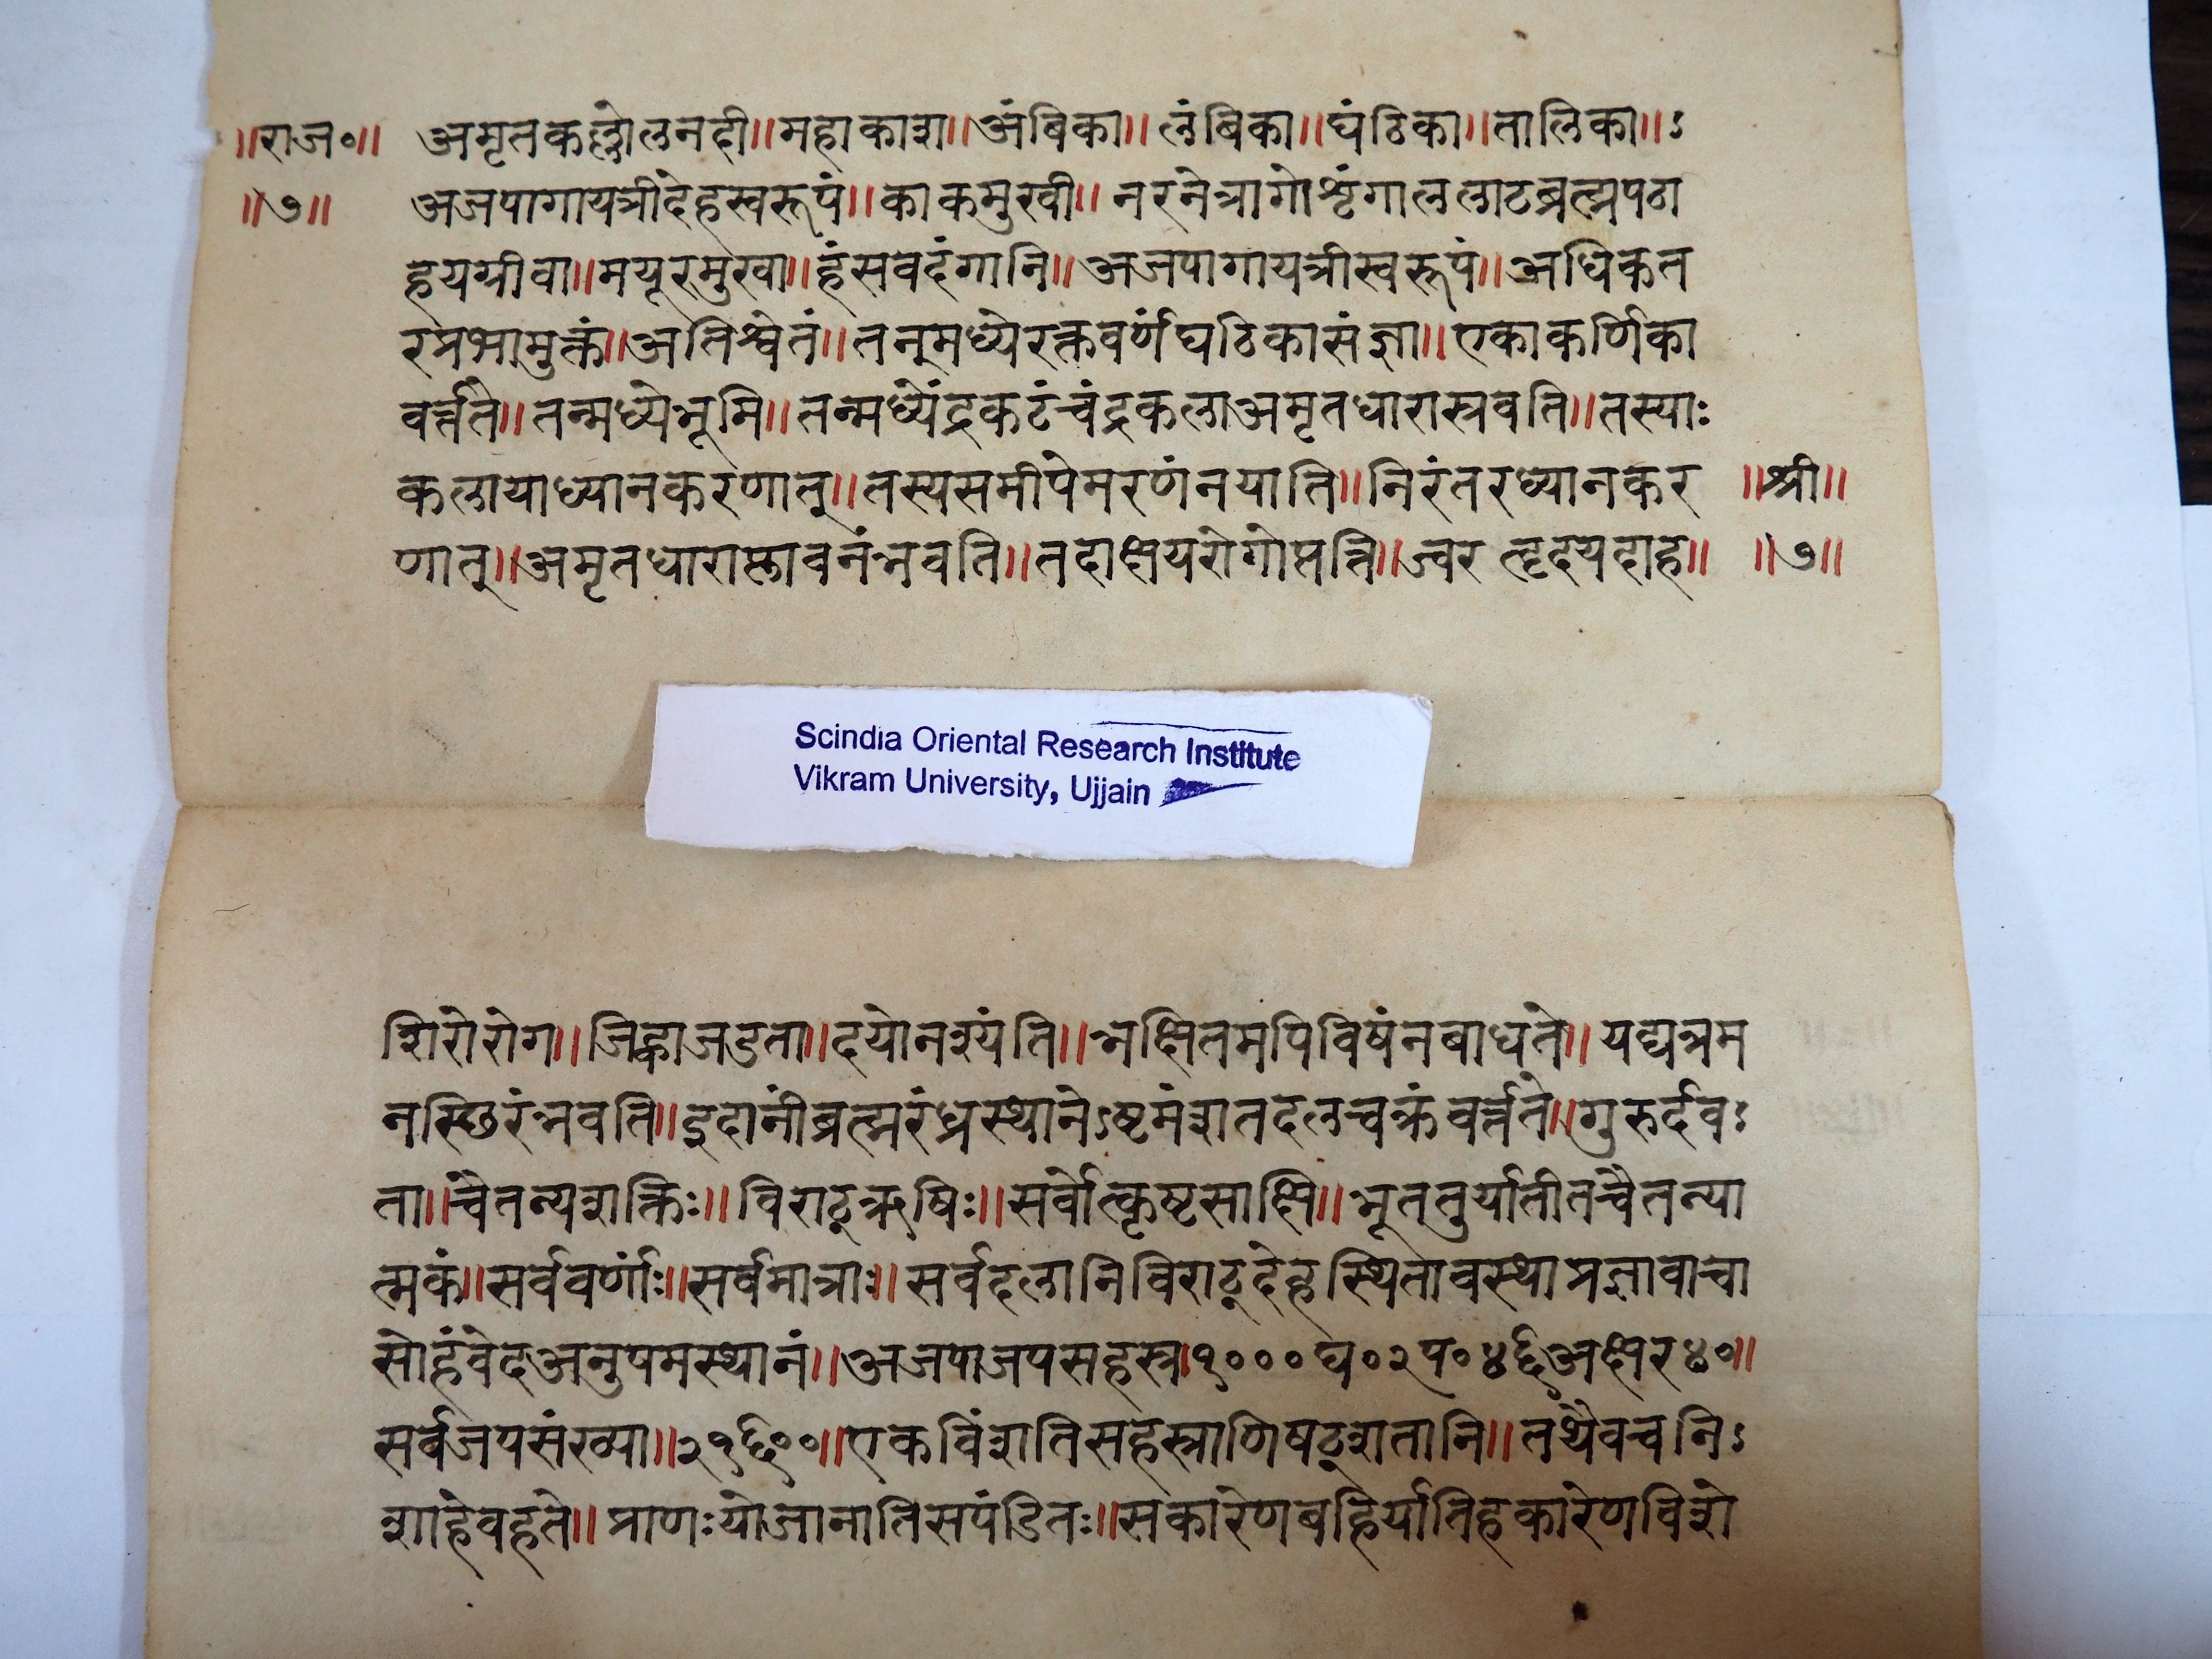 ॥राज०॥ अमृतकल्लोलनदी॥महाकाश॥अंबिका॥लंबिका॥घंटिका॥तालिका॥ऽ
॥७॥ अजपागायत्रीदेहस्वरूपं॥काकमुखी॥नरनेत्रागोशृंगाललाटब्रह्मपठा
हयग्रीवा॥मयूरमुखा॥हंसवदंगानि॥अजपागायत्रीस्वरूपं॥अधिकत
रप्रभामुक्तं॥अतिश्वेतं॥तन्मध्येरक्तवर्णघटिकासंज्ञा॥एकाकर्णिका
वर्त्तते॥तन्मध्येभूमि॥तन्मध्येंद्रकटंचंद्रकलाअमृतधारास्त्रवति॥तस्याः
कलायाध्यानकरणात्॥तस्यसमीपेमरणंनयाति॥निरंतरध्यानकर ॥श्री॥
णात्॥अमृतधाराप्लावनंभवति॥तदाक्षयरोगोप्तत्ति॥ज्वरहृदयदाह॥ ॥७॥
Scindia Oriental Research Institute
Vikram University, Ujjain
शिरोरोग॥जिह्वाजडता॥दयोनश्यंति॥भक्षितमपिविषंनबाधते॥यद्यत्रम
नस्छिरंभवति॥इदानींब्रह्मरंध्रस्थानेऽष्टमंशतदलचक्रंवर्त्तते॥गुरुर्देवऽ
ता॥चैतन्यशक्तिः॥विराट्ऋषिः॥सर्वोत्कृष्टसाक्षि॥भूततुर्यातीतचैतन्या
त्मकं॥सर्ववर्णाः॥सर्वमात्राः॥सर्वदलानिविराट्देहस्थितावस्थाप्रज्ञावाचा
सोहंवेदअनुपमस्थानं॥अजपाजपसहस्त्र१०००घ०२प०४६अक्षर४०॥
सर्वजपसंख्या॥२१६००॥एकविंशतिसहस्त्राणिषट्शतानि॥तथैवचनिऽ
शाहेवहते॥प्राणःयोजानातिसपंडितः॥सकारेणबहिर्यातिहकारेणविशे